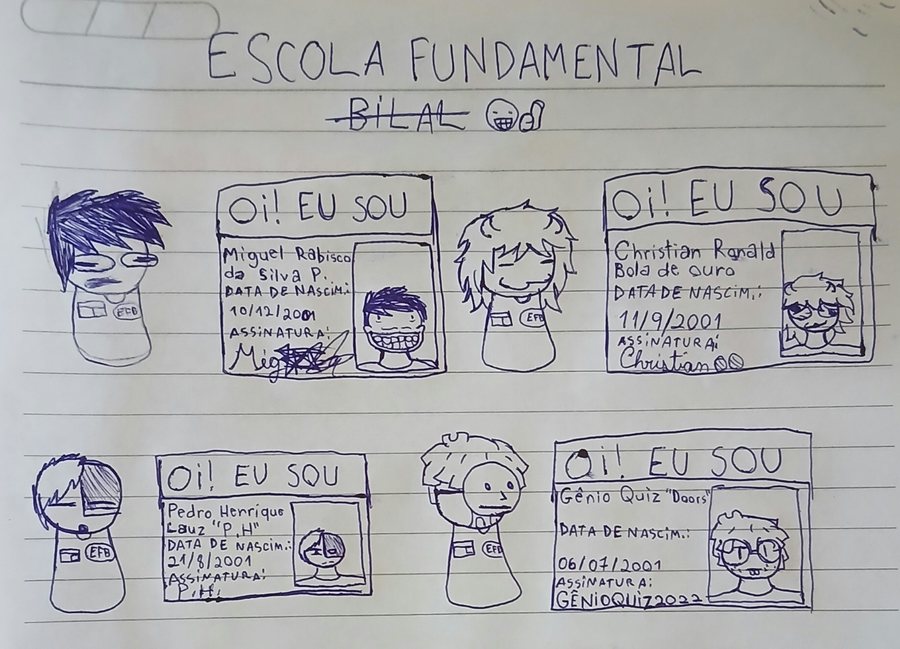 ESCOLA FUNDAMENTAL
BiLAL
EFB
Oi! EU SOU
Miguel Rabisco
da Silva P.
DATA DE NASCIM.:
10/12/2001
ASSINATURA:
EFB
Oi! EU SOU
Christian Ronald
Bola de ouro
DATA DE NASCIM.:
11/9/2001
ASSINATURA:
Christian
EFB
Oi! EU SOU
Pedro Henrique
Lauz "P.H"
DATA DE NASCIM.:
21/8/2001
ASSINATURA:
P.H.
EFB
Oi! EU SOU
Gênio Quiz "Doors"
DATA DE NASCIM.:
06/07/2001
ASSINATURA:
GÊNiOQUiZ2022